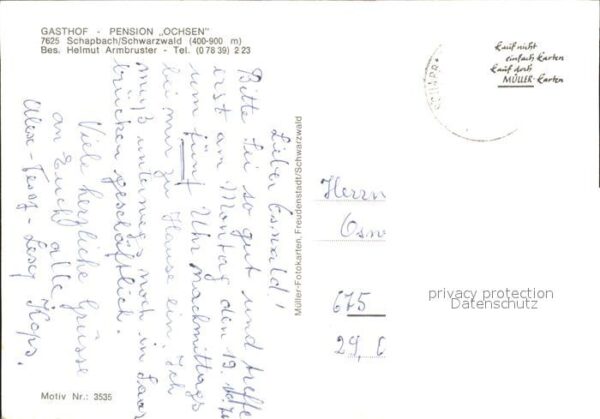 GASTHOF - PENSION „OCHSEN"
7625 Schapbach/Schwarzwald (400-900 m)
Bes. Helmut Armbruster - Tel. (0 78 39) 2 23
kauf nicht
einfach Karten
kauf doch
MÜLLER-Karten
Lieber Oswald!
Bitte sei so gut und treffe
erst am Montag den 19.
um fünf Uhr nachmittags
bei mir zu Hause ein. Ich
muß unterwegs noch in Saar
brücken geschäftlich.
Viele herzliche Grüsse
an Euch alle
Müller-Fotokarten, Freudenstadt/Schwarzwald
Herrn
Osw
675
29, 
privacy protection
Datenschutz
Motiv Nr.: 3535